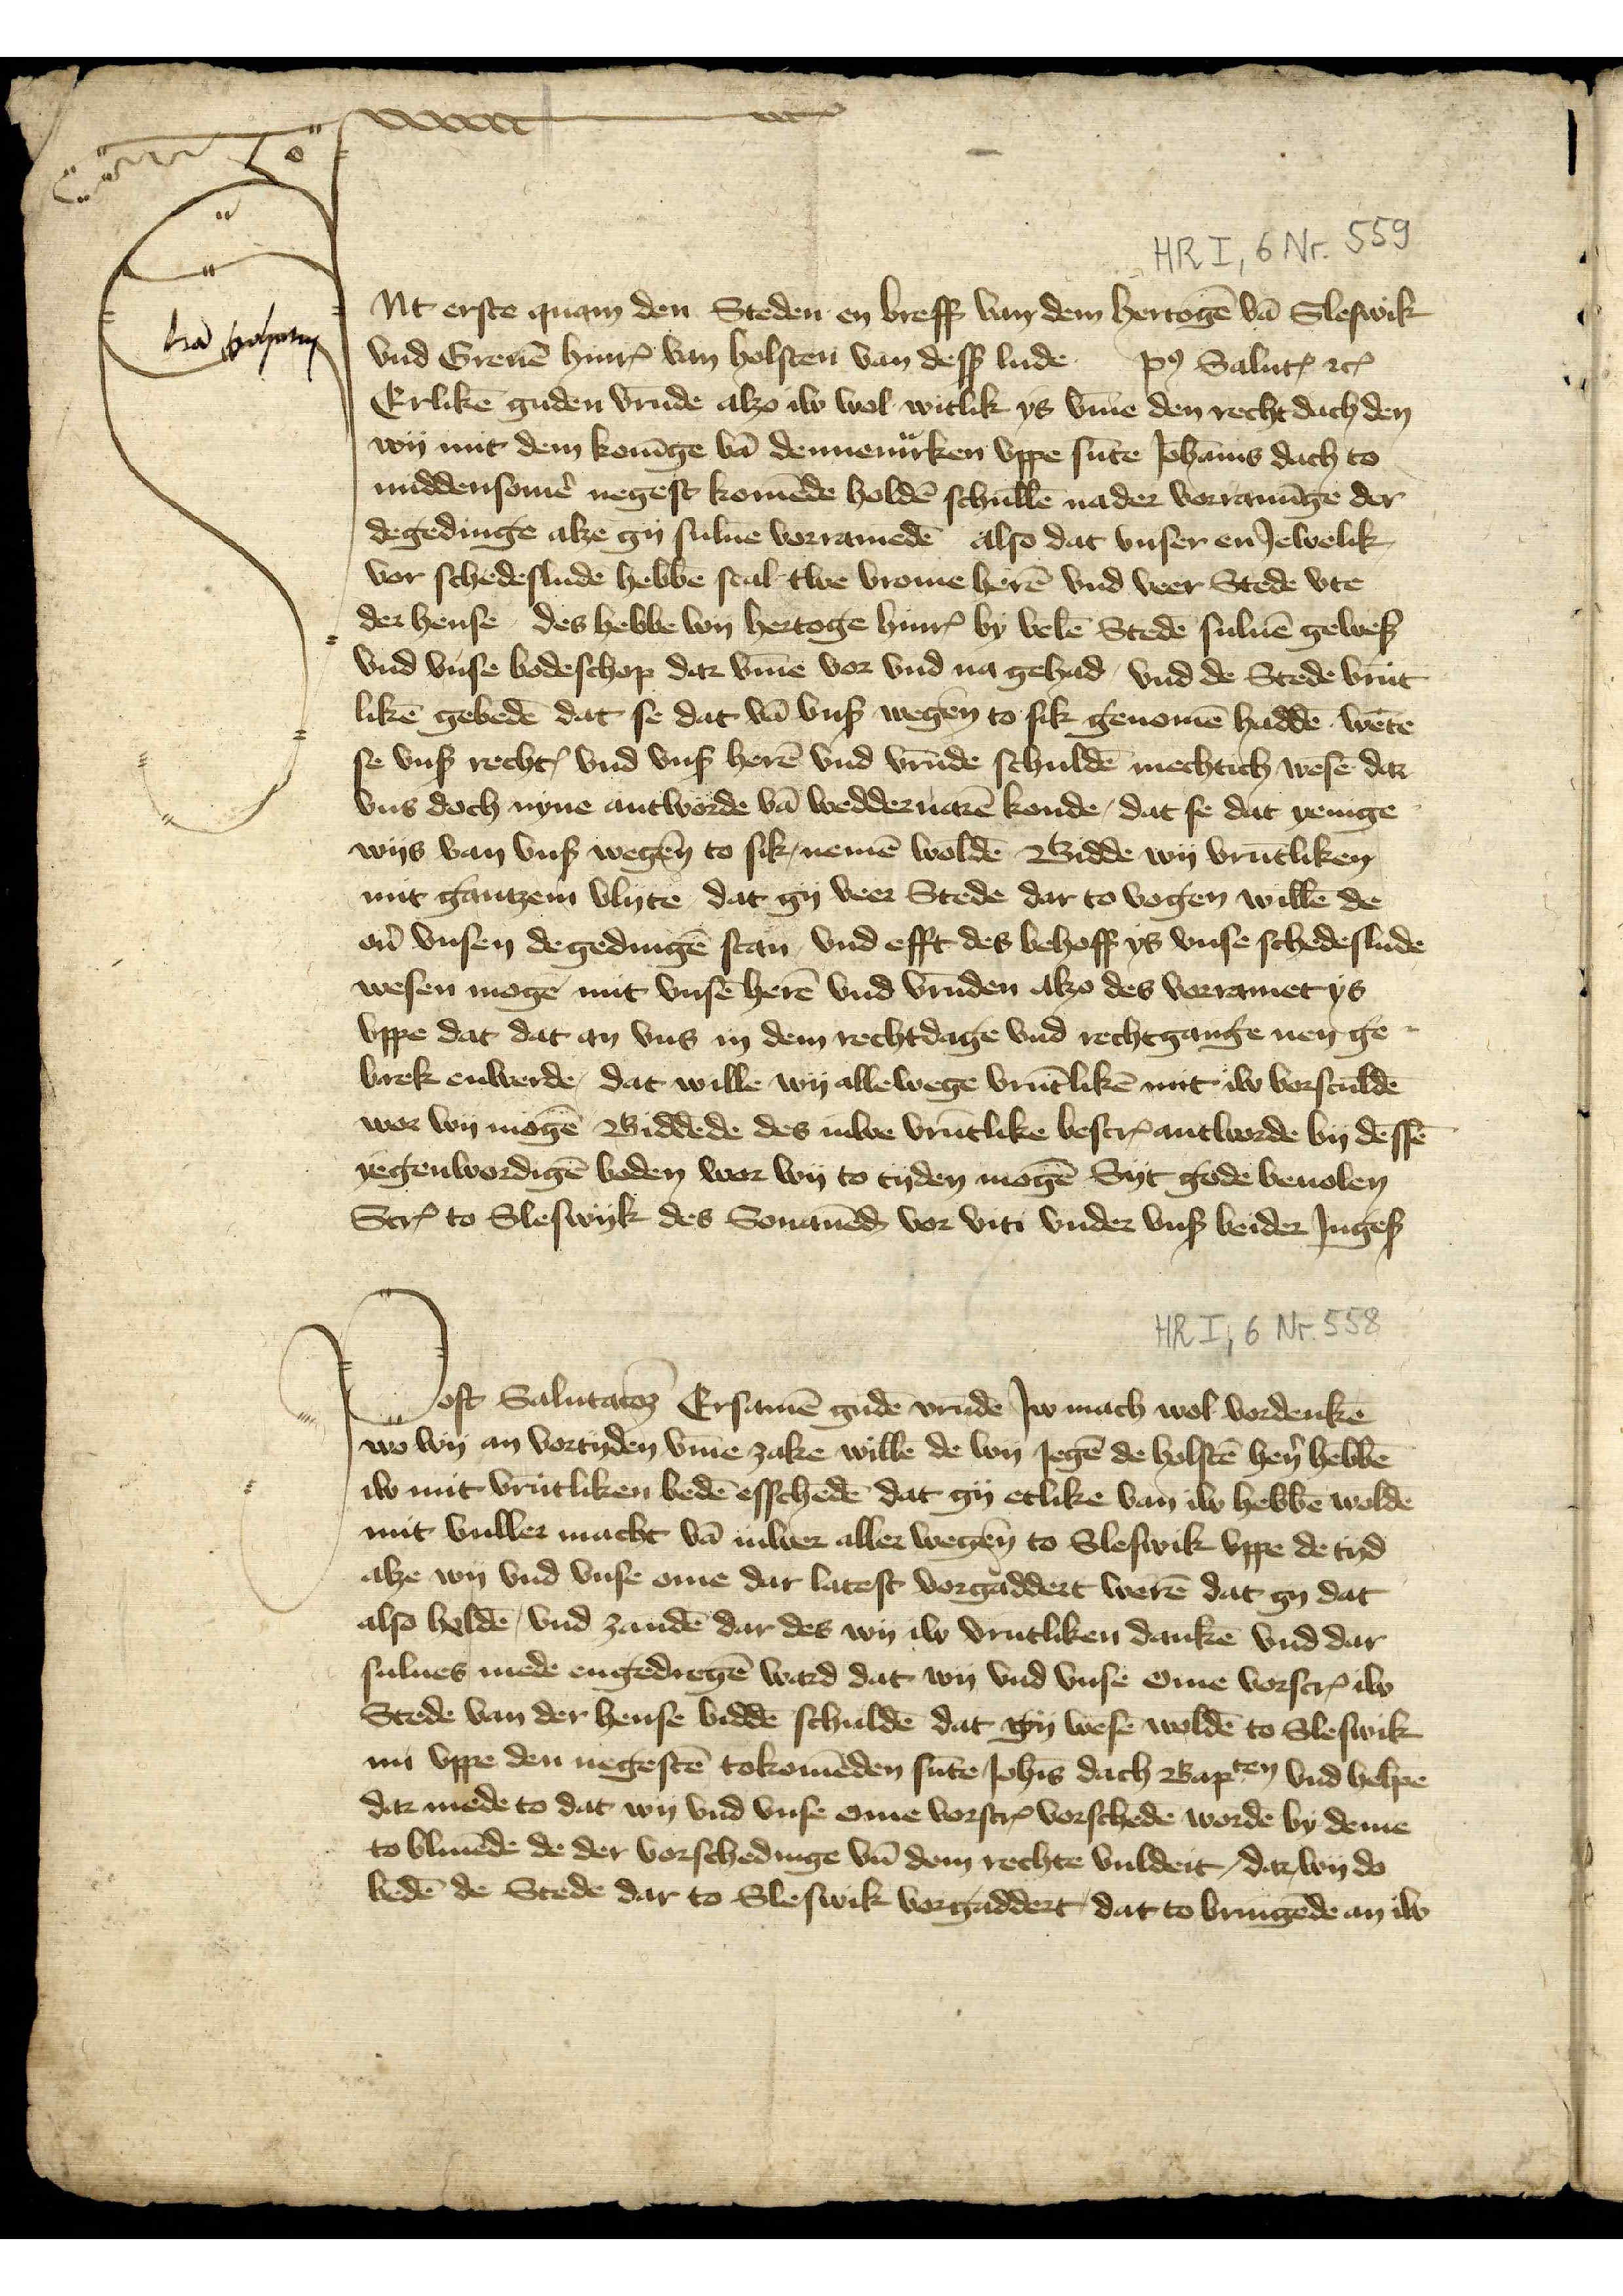 HR I, 6 Nr. 559
Nt erste quam den Steden en breff van dem hertogē vā Sleswik
vnd Greuē hinr̄ van holsten van dess lude p9 Salut̄ ꝛc̄
Erlikē guden vrūde alzo iw wol witlik ys vm̄e den recht dach den
wij mit dem konīge vā dennemᵃrken vppe sūte Johānis dach to
middensomer̄ negest komēde holdē schullē na der vorramīge der
degedinge alze gij sulue vorramedē also dat vnser en Jewelik
vor schedeslude hebbē scal twe vrome herē vnd veer Stede vte
der hense des hebbe wij hertoge hinr̄ by velē Stedē suluē gewesß
vnd vnse bodeschop dar vm̄e vor vnd na gehad / vnd de Stede vrūt
likē gebedē dat se dat vā vnß wegēn to sik genomē haddē wēte
se vnß recht̄ vnd vnß herē vnd vrūde schuldē mechtich wesē dar
vns doch nyne antworde vā wedderuarē konde / dat se dat yenige
wijs van vnß wegēn to sik / nemē woldē Bidde wij vrūtliken
mit gantzem vlyte dat gij veer Stede dar to vogen willē de
ou̅ vnsen degedingē stan / vnd efft des behoff ys vnse schedeslude
wesen mogē mit vnsē herē vnd vrūden alzo des vorramet ys
vppe dat dat an vns in dem rechtdage vnd rechtgange nen ge
brek enwerde / dat wille wij allewege vrūtlikē mit iw vorsculdē
wor wij mogē Biddēde des iuwe vrūtlike bescr̄ antworde bij dessē
yegenwordigē boden wor wij to tijden mogē Sijt gode beuolen
Scr̄ to Sleswijk des Sonauēdˢ vor viti vnder vnß beider Jngeß
HR I, 6 Nr. 558
Post Salutacōꝫ Ersamē gudē vrūdē Jw mach wol vordenkē
wo wij an vortijden vm̄e zake willē de wij Jegē de holstē hern̄ hebbē
iw mit vrūtliken bedē esschedē dat gij etlike van iw hebbē woldē
mit vuller macht vā iuwer aller wegēn to Sleswik vppe de tijd
alze wij vnd vnse ome dar latest vorgaddert werē dat gij dat
also holdē / vnd zandē dar des wij iw vrūtliken dankē vnd dar
sulues mede engedregē ward dat wij vnd vnse ome vorscr̄ iw
Stede van der hense biddē schuldē dat gij wesē woldē to Sleswik
nu vppe den negestē tokomēden sūte Johīs dach Bapᵗᵉⁿ vnd helpē
dar mede to dat wij vnd vnse ome vorscr̄ vorschedē wordē by deme
to bliuēde de der vorschedinge vn̄ dem rechte vuldeit / dar / wij do
bedē de Stede dar to Sleswik vorgaddert / dat to bringēde an iw